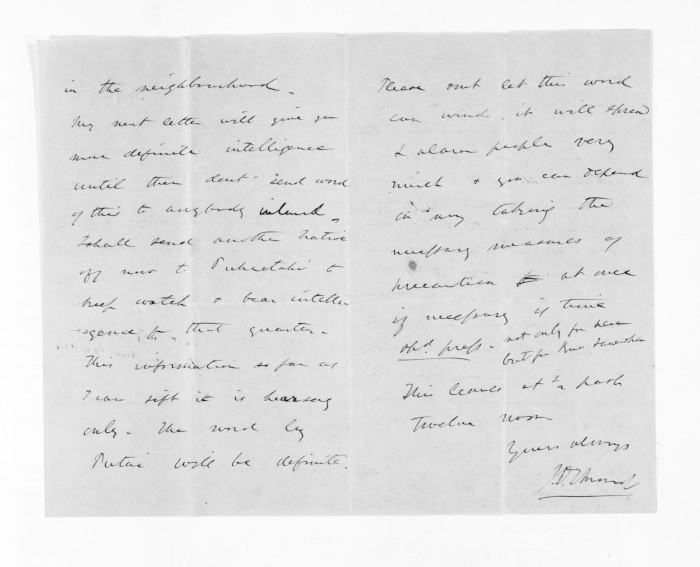 in the neighbourhood.
My next letter will give you
more definite intelligence
until then dont send word
of this to anybody inland.
I shall send another native
off now to Puketahi to
keep watch & bear intelli
-gence fr. that quarter.
This information so far as
I can sift it is hearsay
only. The word by
will be definite.
Please dont let this word
run wind. it will spread
& alarm people very
much & you can depend
in my taking the
necessary measures of
precaution at once
if necessary if time
shd. press. not only for here
but for
This leaves at ½ past
twelve noon
Yours always